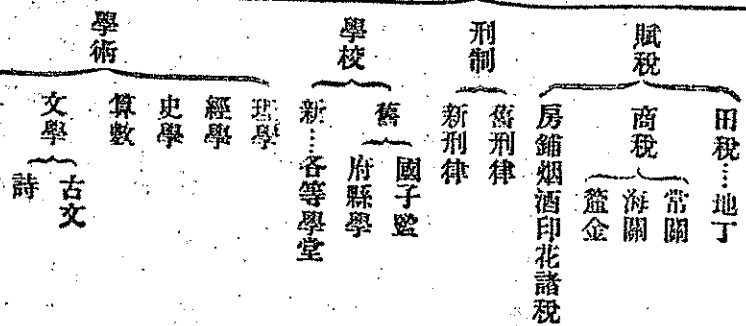 賦稅
田稅…地丁
商稅
常關
海關
釐金
房鋪烟酒印花諸稅
刑制
舊刑律
新刑律
學校
舊
國子監
府縣學
新…各等學堂
學術
理學
經學
史學
算數
文學
古文
詩